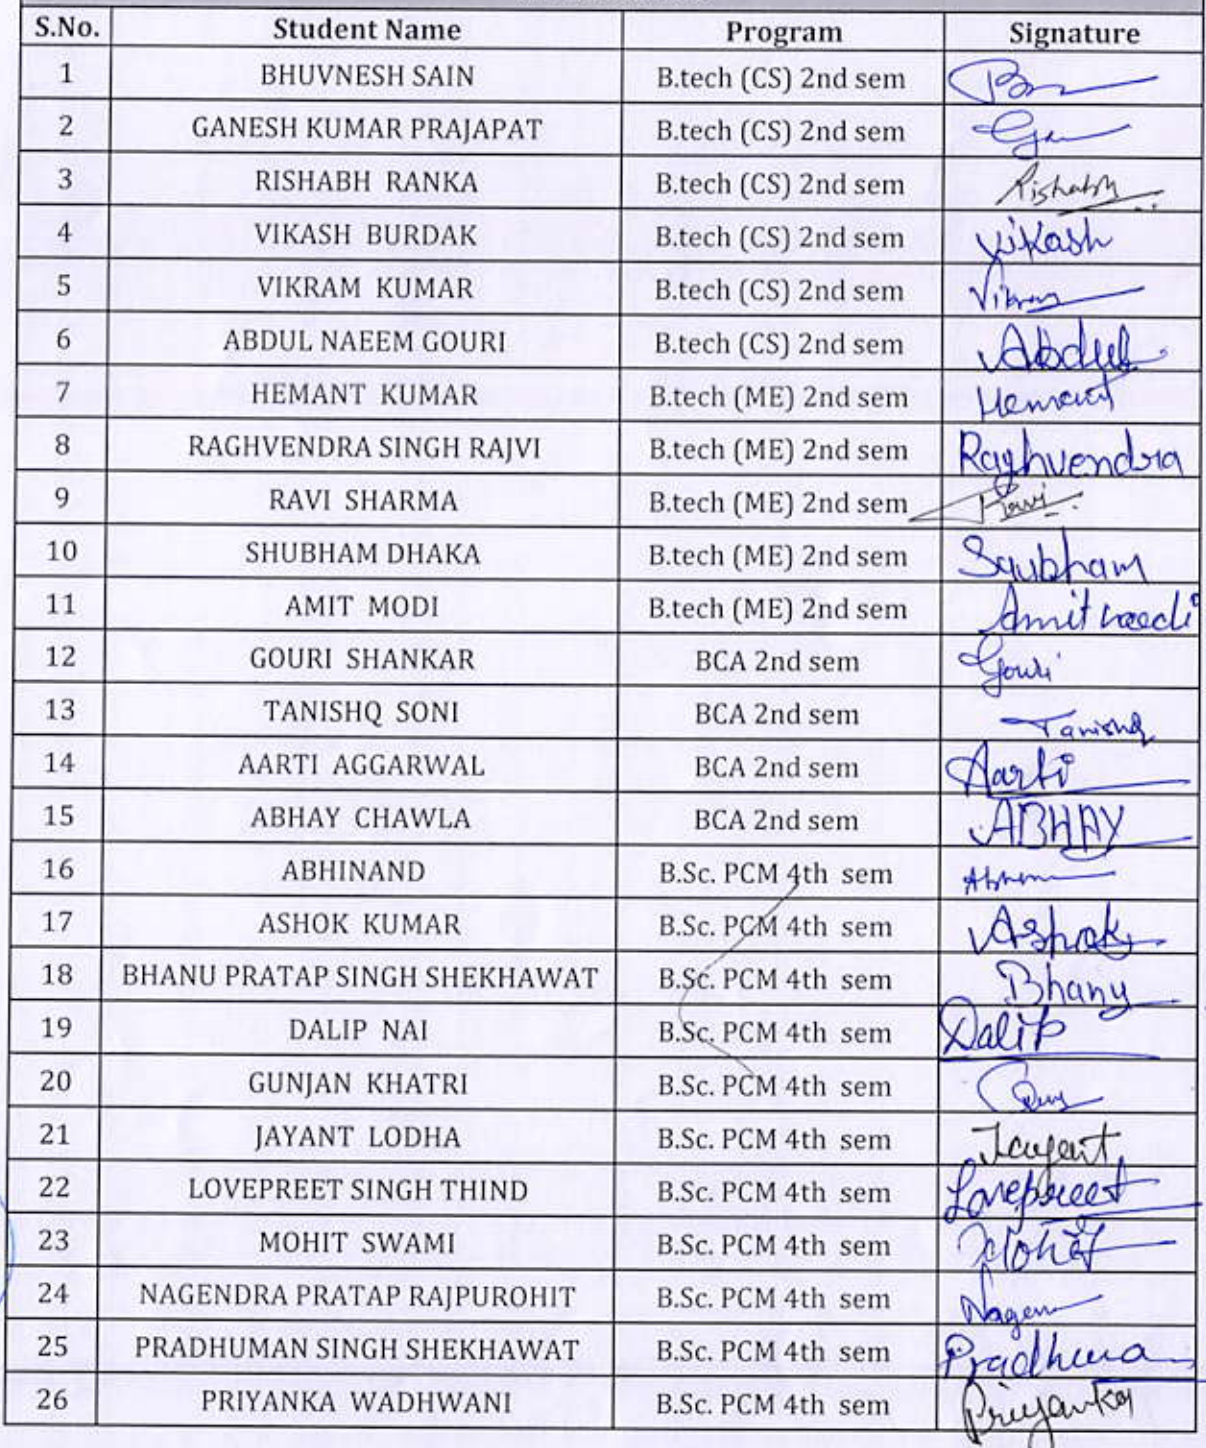 S.No. Student Name Program Signature
1 BHUVNESH SAIN B.tech (CS) 2nd sem
2 GANESH KUMAR PRAJAPAT B.tech (CS) 2nd sem
3 RISHABH RANKA B.tech (CS) 2nd sem Rishabh
4 VIKASH BURDAK B.tech (CS) 2nd sem Vikash
5 VIKRAM KUMAR B.tech (CS) 2nd sem
6 ABDUL NAEEM GOURI B.tech (CS) 2nd sem Abdul
7 HEMANT KUMAR B.tech (ME) 2nd sem Hemant
8 RAGHVENDRA SINGH RAJVI B.tech (ME) 2nd sem Raghvendra
9 RAVI SHARMA B.tech (ME) 2nd sem Ravi
10 SHUBHAM DHAKA B.tech (ME) 2nd sem
11 AMIT MODI B.tech (ME) 2nd sem Amit
12 GOURI SHANKAR BCA 2nd sem Gouri
13 TANISHQ SONI BCA 2nd sem Tanishq
14 AARTI AGGARWAL BCA 2nd sem Aarti
15 ABHAY CHAWLA BCA 2nd sem ABHAY
16 ABHINAND B.Sc. PCM 4th sem
17 ASHOK KUMAR B.Sc. PCM 4th sem Ashok
18 BHANU PRATAP SINGH SHEKHAWAT B.Sc. PCM 4th sem Bhanu
19 DALIP NAI B.Sc. PCM 4th sem Dalip
20 GUNJAN KHATRI B.Sc. PCM 4th sem
21 JAYANT LODHA B.Sc. PCM 4th sem Jayant
22 LOVEPREET SINGH THIND B.Sc. PCM 4th sem Lovepreet
23 MOHIT SWAMI B.Sc. PCM 4th sem Mohit
24 NAGENDRA PRATAP RAJPUROHIT B.Sc. PCM 4th sem
25 PRADHUMAN SINGH SHEKHAWAT B.Sc. PCM 4th sem
26 PRIYANKA WADHWANI B.Sc. PCM 4th sem Priyanka